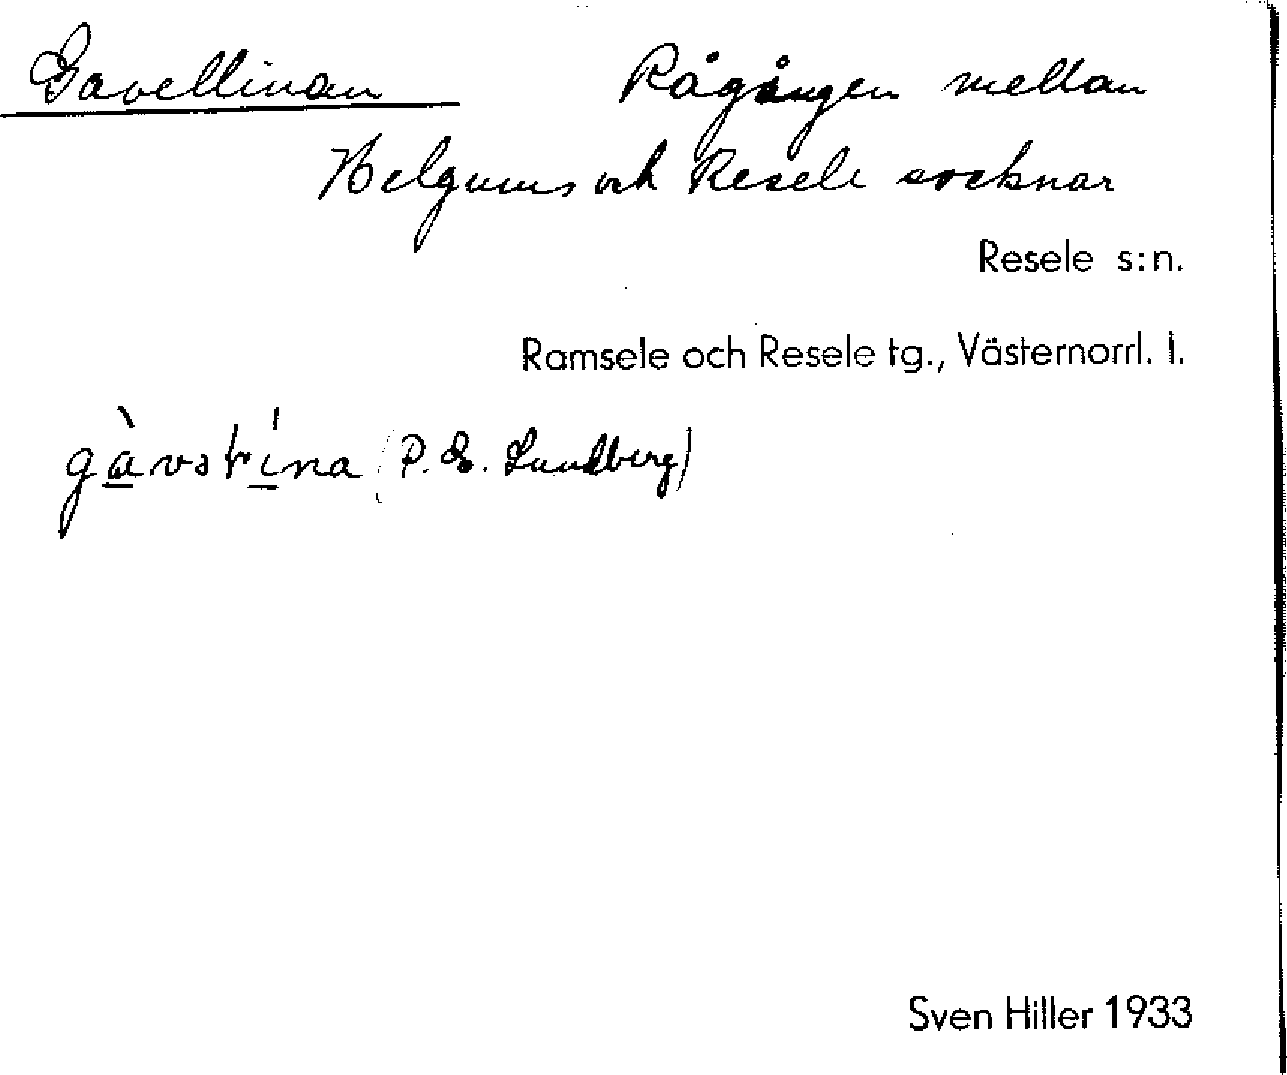 Gavellinan Rågången mellan
Helgums och Resele socknar
Resele s:n.
Ramsele och Resele tg., Västernorrl. l.
(P. E. Lundberg)
Sven Hiller 1933